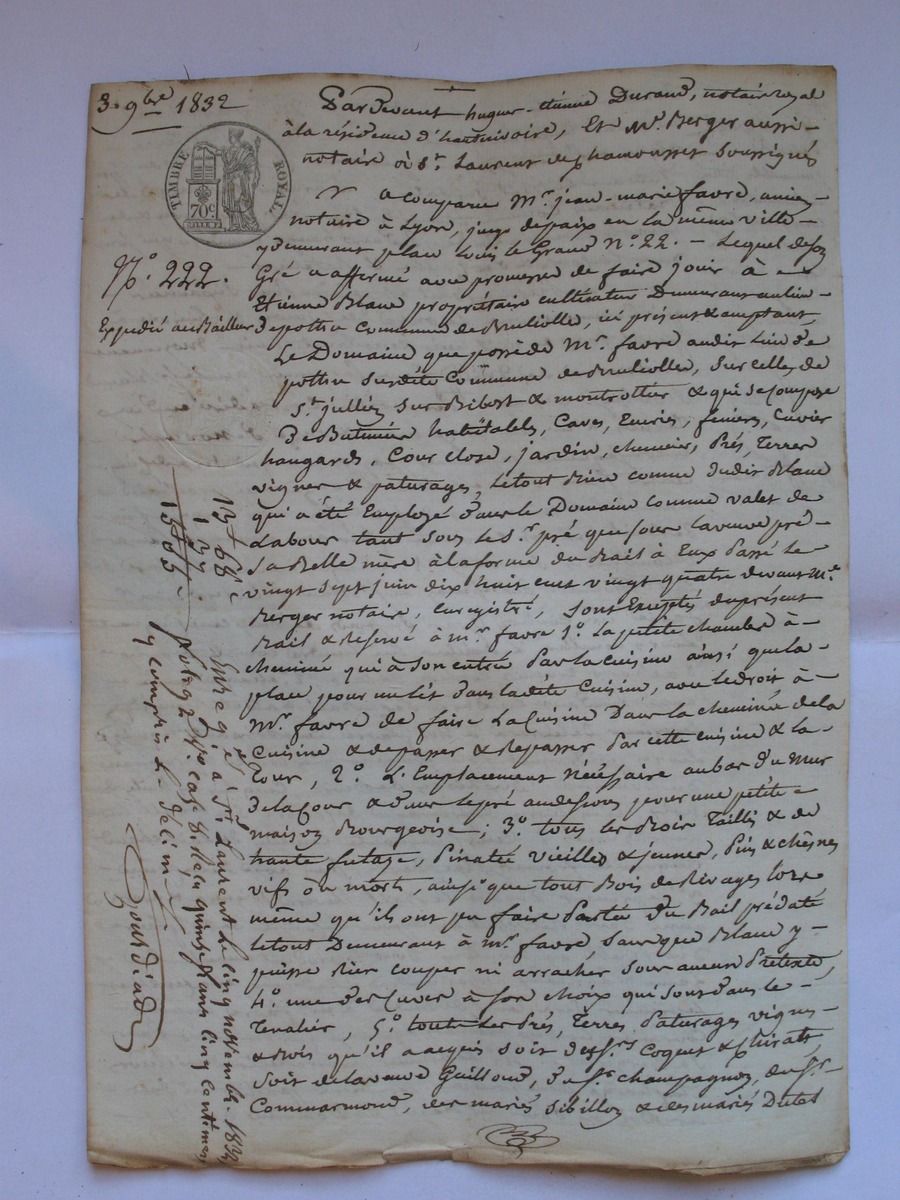 3. 9bre 1832
TIMBRE ROYAL
70c.
N°. 222.
Expedié au Bailleur
Pardevant hugue-etienne Durand, notaire royal
à la résidence d'hauterivoire, Et Mr. Berger aussi
notaire à St. Laurent de chamousset soussignés
a comparu Mr. jean-marie favre, ancien
notaire à Lyon, juge depaix en la même ville
y Demeurant place Louis le Grand N°. 22. - Lequel deson
Gré a affermé avec promesse de faire jouir à
Etienne Blanc propriétaire cultivateur Demeurant aulieu
Depottu Commune de Brulliolle, ici présent & acceptant,
Le Domaine que possède Mr. favre audit Lieu de
pottu susdite Commune de Brulliolle, sur celles de
St. jullien sur Bibost & montrottier & qui se compose
De Batimens habitables, Caves, Ecuries, feniers, Cuvier
hangards, Cour close, jardin, chenevier, Prés, Terres
vignes & paturages, letout Bien connu dudit Blanc
qui a été Employé dans le Domaine comme valet de
Labour tant sous le Sr. pré que sous la veuve pré
Sa Belle mère à la forme du Bail à Eux Passé le
vingt Sept juin dix huit cent vingt quatre devant Me.
Berger notaire, Enregistré, sont Exceptés du présent
Bail & Reservé à mr. favre 1°. La petite chambre à
cheminée qui à son entrée Par la cuisine ainsi que la
place pour un lit dans ladite Cuisine, avec le droit à
Mr. favre de faire La Cuisine Dans la cheminée de la
Cuisine & de passer & Repasser Par cette cuisine & la
Cour, 2°. L'Emplacement Nécessaire au bas Du Mur
De la Cour & dans le pré audessous pour une petite
maison Bourgeoise; 3°. tous les Bois Taillis & de
haute futage, Pinatée vieilles & jeunes, Pins & chênes
vifs ou morts, ainsi que tout Bois de Rivages lors
même qu'ils ont pu faire Partie Du Bail prédaté
letout Demeurant à mr. favre, sans que Blanc y
puisse Rien couper ni arracher sous aucun Prétexte,
4°. une des Cuves à son choix qui sont dans le
Tenalier, 5°. toute les Prés, Terres, Paturages vignes
& Bois qu'il a acquis soit des Srs. Coquet &
soit de la veuve Guilloud, du Sr. champagnon, du Sr.
Commarmond, des mariés Sibillon & des mariés Dutel
Enregé. à St. Laurent le cinq novembre 1832,
folio 92 Vo. case 8. Reçu quinze francs cinq centimes,
y compris le décime
13 68c
1 37
15 05